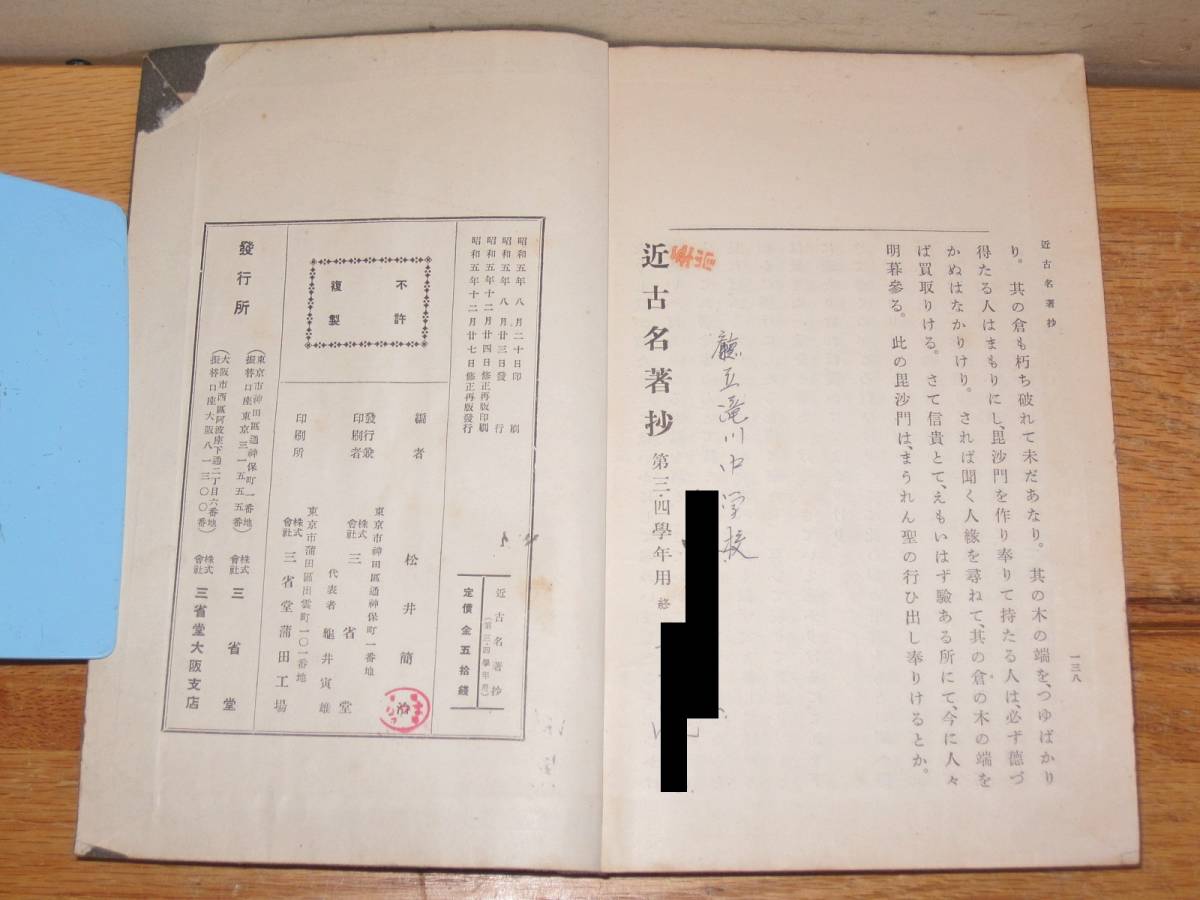 近古名著抄
一三八
り。其の倉も朽ち破れて未だあなり。其の木の端を、つゆばかり
得たる人はまもりにし、毘沙門を作り奉りて持たる人は、必ず德づ
かぬはなかりけり。されば聞く人緣を尋ねて、其の倉の木の端を
ば買取りける。さて信貴とて、えもいはず驗ある所にて、今に人々
明暮參る。此の毘沙門は、まうれん聖の行ひ出し奉りけるとか。
廳立滝川中学校
近古名著抄 第三・四學年用 終
昭和五年八月二十日印刷
昭和五年八月廿三日發行
昭和五年十二月廿四日修正再版印刷
昭和五年十二月廿七日修正再版發行
近古名著抄
(第三・四學年用)
定價金五拾錢
不許
複製
編者 松井簡治
發行兼
印刷者
東京市神田區通神保町一番地
株式
會社
三省堂
代表者 龜井寅雄
印刷所
東京市蒲田區出雲町一〇一番地
株式
會社
三省堂蒲田工場
發行所
(東京市神田區通神保町一番地
振替口座東京三一五五五番)
株式
會社
三省堂
(大阪市西區阿波座下通二丁目六番地
振替口座大阪八一三〇〇番)
株式
會社
三省堂大阪支店